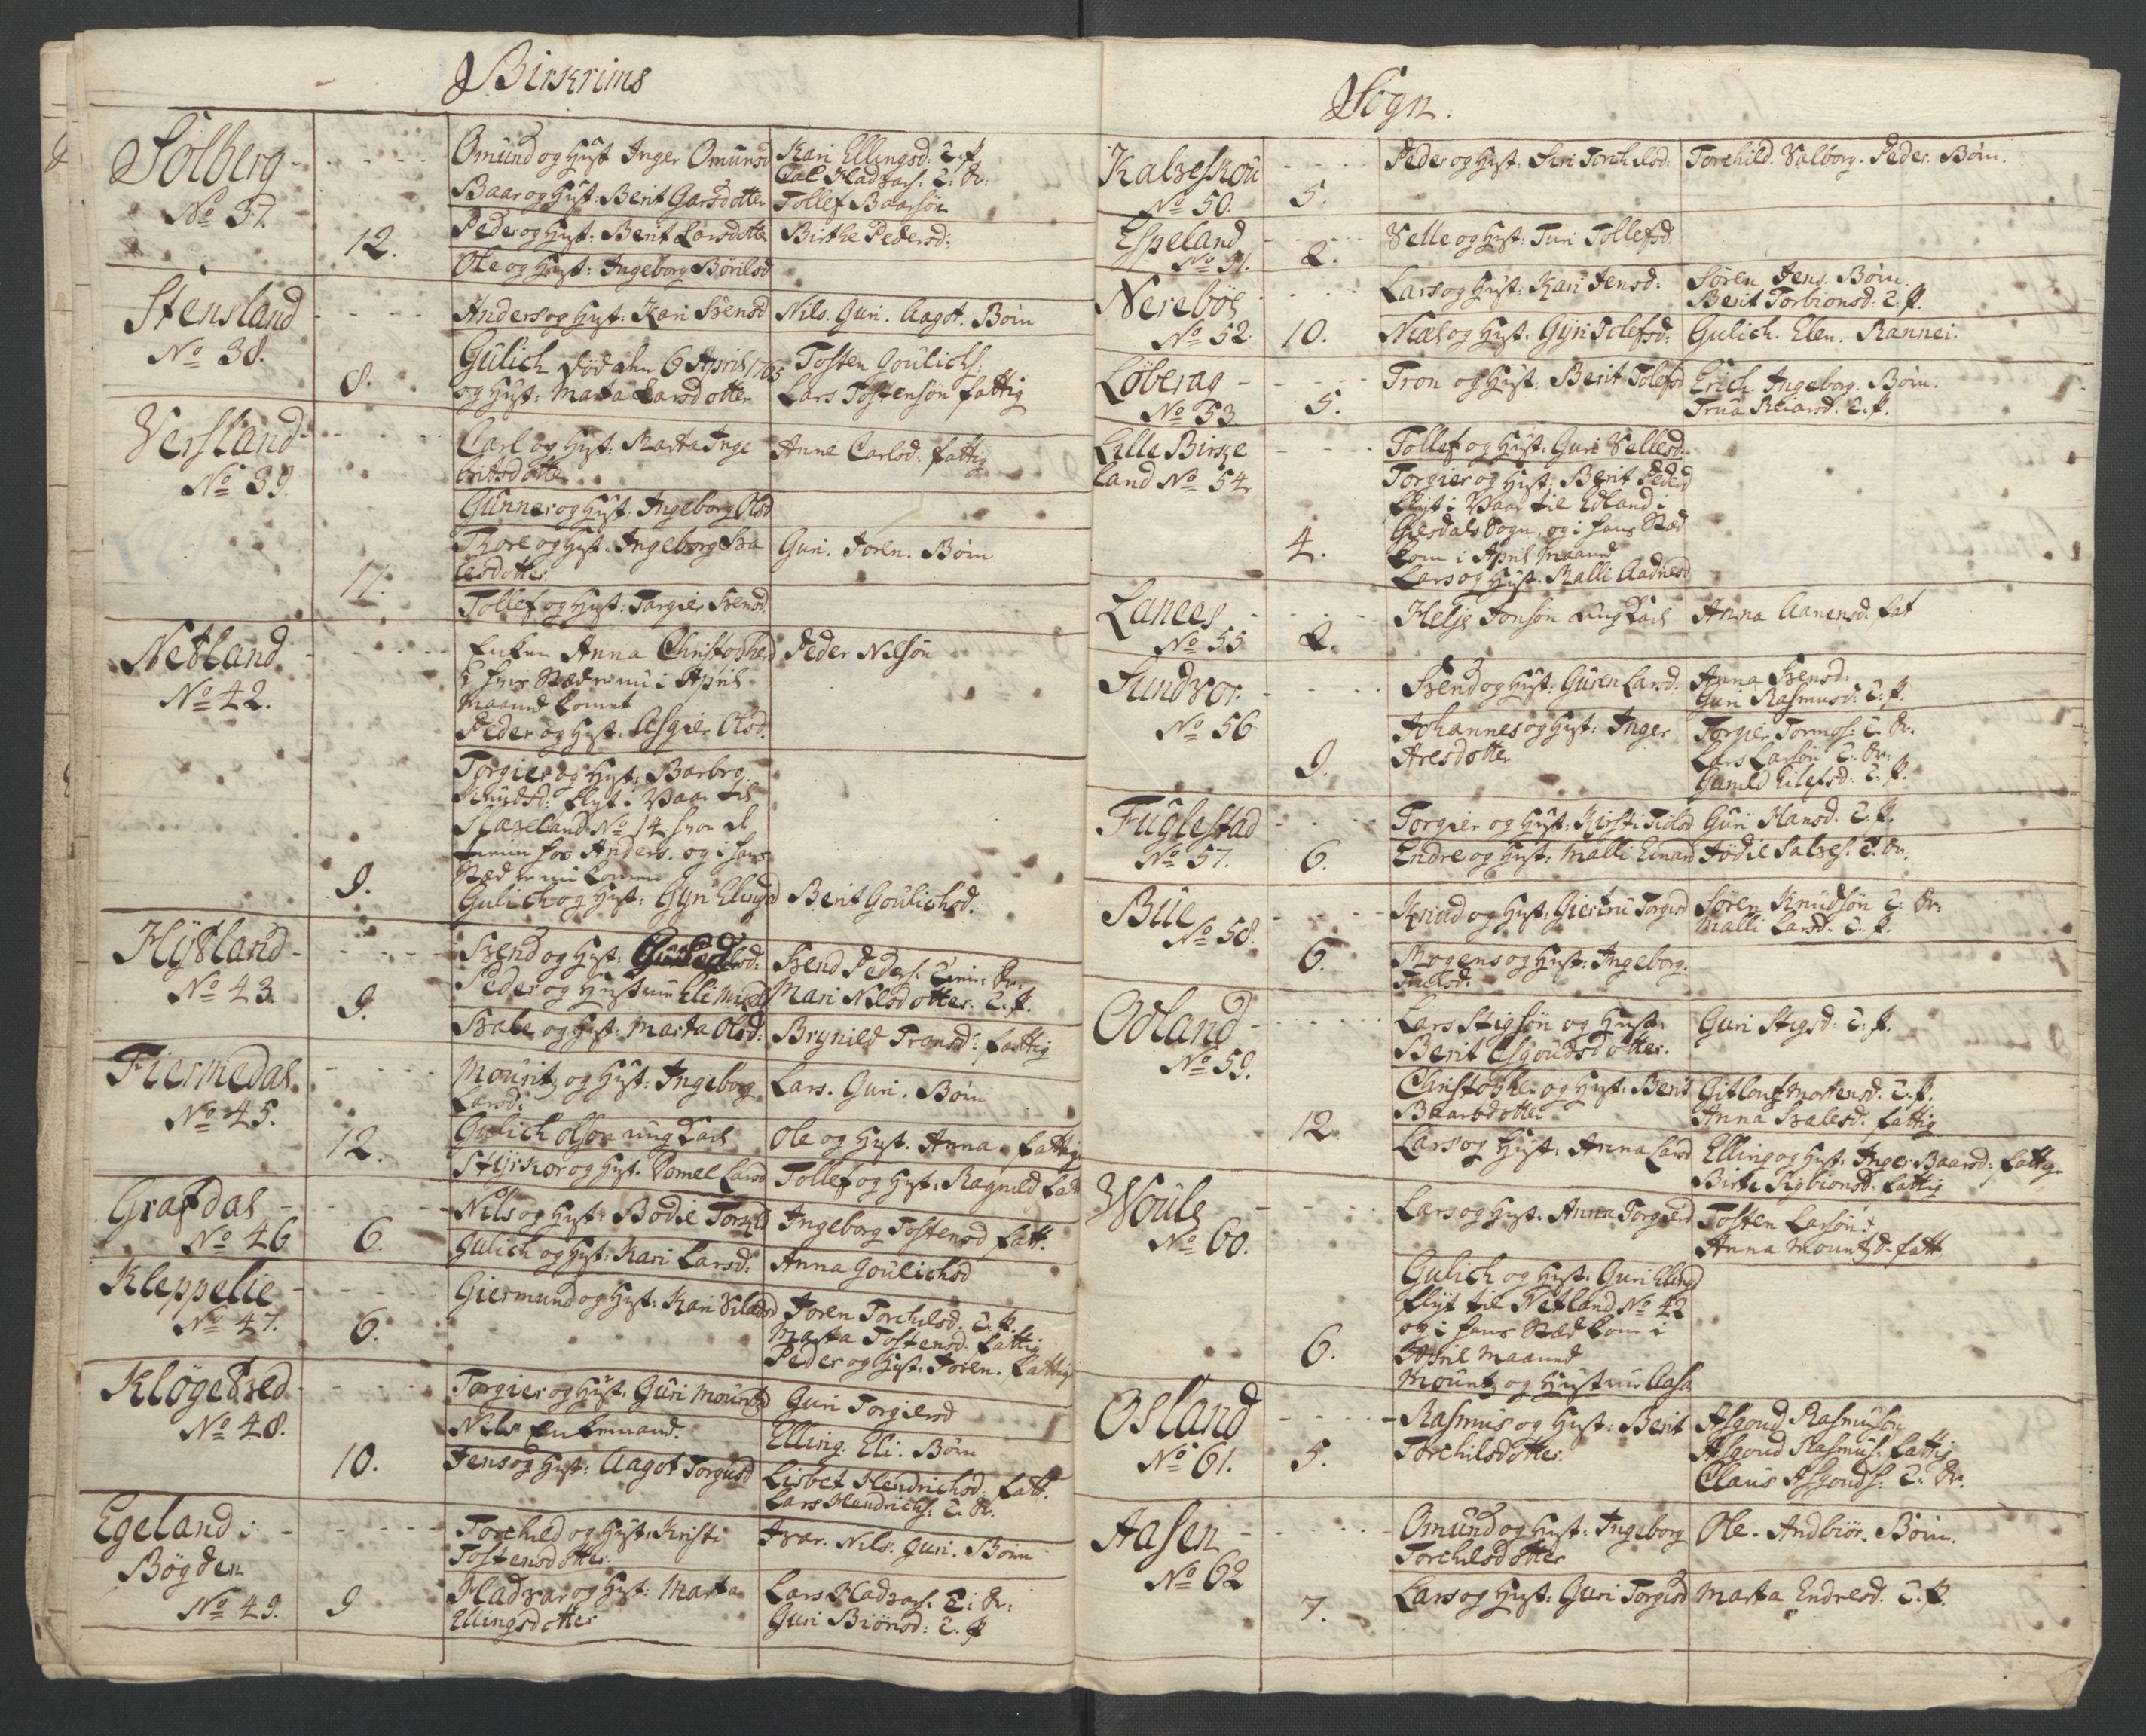 Birkrims
Solberg
No 37.
12.
Omund og Hust Inger Omunsd
Kari Ellingsd: T. P.
Baar og Hust: Berit Garsdotter
Tollef Baarsøn
Peder og Hust: Berit Larsdotter
Birthe Pedersd:
Ole og Hust: Ingeborg Børilsd
Stensland
No 38.
8.
Anders og Hust: Kari Svensd
Nils. Guri. Aagot. Børn
Gulich død den 6 April 1765
Tosten Goulichs:
og Hust: Marta Larsdotter
Lars Tostensøn fattig
Versland
No 39.
11.
Carl og Hust: Marta Inge
britsdotter
Anne Carlsd: fattig
Gunner og Hust: Ingeborg Olsd
Thore og Hust: Ingeborg Sva
lesdotter
Guri. Joren. Børn
Tollef og Hust: Torgier Svensd.
Netland
No 42.
9.
Enken Anna Christophersd
Peder Nilsøn
i hans Stæd er nu i April
Maaned komet
Peder og Hust: Asgier Olsd.
Torgier og Hust: Barbro
Knudsd: flyt i Vaar til
Stavseland No 14 hvor de
tienner hos Anders. og i hans
Stæd er nu kommen
Gulich og Hust: Gyri Elingsd
Berit Goulichsd.
Hytland
No 43.
9.
Svend og Hust:
Svend Peders: Tien: Dr:
Peder og Hustrue Eli
Mari Nilsdotter: T. P.
Svale og Hust: Marta Olsd:
Brynild Tronsd: fattig
Fiermedal
No 45.
12.
Mouritz og Hust: Ingeborg
Larsd:
Lars. Guri. Børn
Gulich Olsøn ung Karl
Ole og Hust. Anna. fattig
Styrkor og Hust. Tomel Larsd
Tollef og Hust: Ragnild fatt
Grafdal
No 46
6.
Nils og Hust: Bodil Torkild
Ingeborg Tostensd fatt.
Gulich og Hust: Kari Larsd:
Anna Goulichsd
Kleppelie
No 47.
6.
Giermund og Hust: Kari
Joren Torchilsd. T. P.
Marta Tostensd. fattig
Peder og Hust: Joren. fattig
Kløgetved
No 48.
10.
Torgier og Hust: Guri Mouritzd
Guri Torgiersd
Nils Enkemand.
Elling. Eli. Børn
Jens og Hust: Aagot Torgiersd
Lisbet Hendrichsd: fatt.
Lars Hendrichs: T. Dr.
Egeland
Bøgden
No 49.
9
Torchild og Hust: Kristi
Tostensdotter
Ivar. Nils. Guri. Børn
Hladvar og Hust: Marta
Ellingsdotter
Lars Hladvars: T: Dr:
Guri Biørnsd: T. P
Sogn.
Kalveskou
No 50.
5.
Peder og Hust: Siri Torchilsd:
Torchild. Valborg. Peder. Børn.
Espeland
No 51.
2.
Velle og Hust: Turi Tollefsd.
Nerebøe
No 52.
10.
Lars og Hust: Kari Jensd:
Søren Jens. Børn
Berit Torbionsd: T: P.
Niæl og Hust: Gyri Tolefsd:
Gulich. Elen. Rannei.
Løbrag
No 53
5.
Tron og Hust: Berit Tolefsd
Erich. Ingeborg. Børn.
Trua Reiarsd. T. P.
Lille Birke
land No 54
4.
Tollef og Hust: Guri Vellesd.
Torgier og Hust: Berit Pedersd
flyt i Vaar til Edland i
Giesdals Sogn, og i hans Stæd
kom i April Maaned
Lars og Hust. Malli Aadnesd
Lanees
No 55
2.
Helje Jonsøn ung Karl
Anna Aanensd. fat
Sundvor
No 56
9.
Svend og Hust: Guren Larsd.
Anna Svensd:
Guri Rasmusd: T. P.
Johannes og Hust: Inger
Aresdotter
Torgier Tormos: T. Dr.
Lars Larsøn T. Dr:
Gunild Eilefsd: T. P.
Fuglestad
No 57.
6.
Torgier og Hust: Kirsti
Guri Hansd. T. P.
Endre og Hust: Malli Einars
Jødil Salves: T. Dr.
Bue
No 58.
6.
Knud og Hust: Giertru Torgiersd
Søren Knudsøn T: Dr:
Malli Larsd. T. P.
Mogens og Hust: Ingeborg.
Odland
No 59.
12
Lars Stigsøn og Hust:
Berit Asgoudsdotter.
Guri Stigsd: T. P.
Christopher og Hust: Berit
Baarsdotter
Gitlou Mortensd. T. P.
Anna Svalesd. fattig
Lars og Hust: Anna Larsd
Elling og Hust: Inger Baarsd: fattig
Birte Sigbionsd. fattig
Woule
No 60.
6.
Lars og Hust: Anna Torgiersd
Tosten Larsøn.
Anna Mouritzd. fatt
Gulich og Hust: Guri Elingsd
flyt til Netland No 42
og i hans Stæd kom i
April Maaned
Mouritz og Hustrue Aasa
Osland
No 61.
5.
Rasmus og Hust: Berit
Torchilsdotter
Asgoud Rasmusøn
Asgoud Rasmus: fattig
Claus Asgouds: T. Dr.
Aasen
No 62
7.
Omund og Hust: Ingeborg
Torchilsdotter
Ole. Andbiør. Børn.
Lars og Hust: Guri Torgiersd
Marta Endresd. T. P.